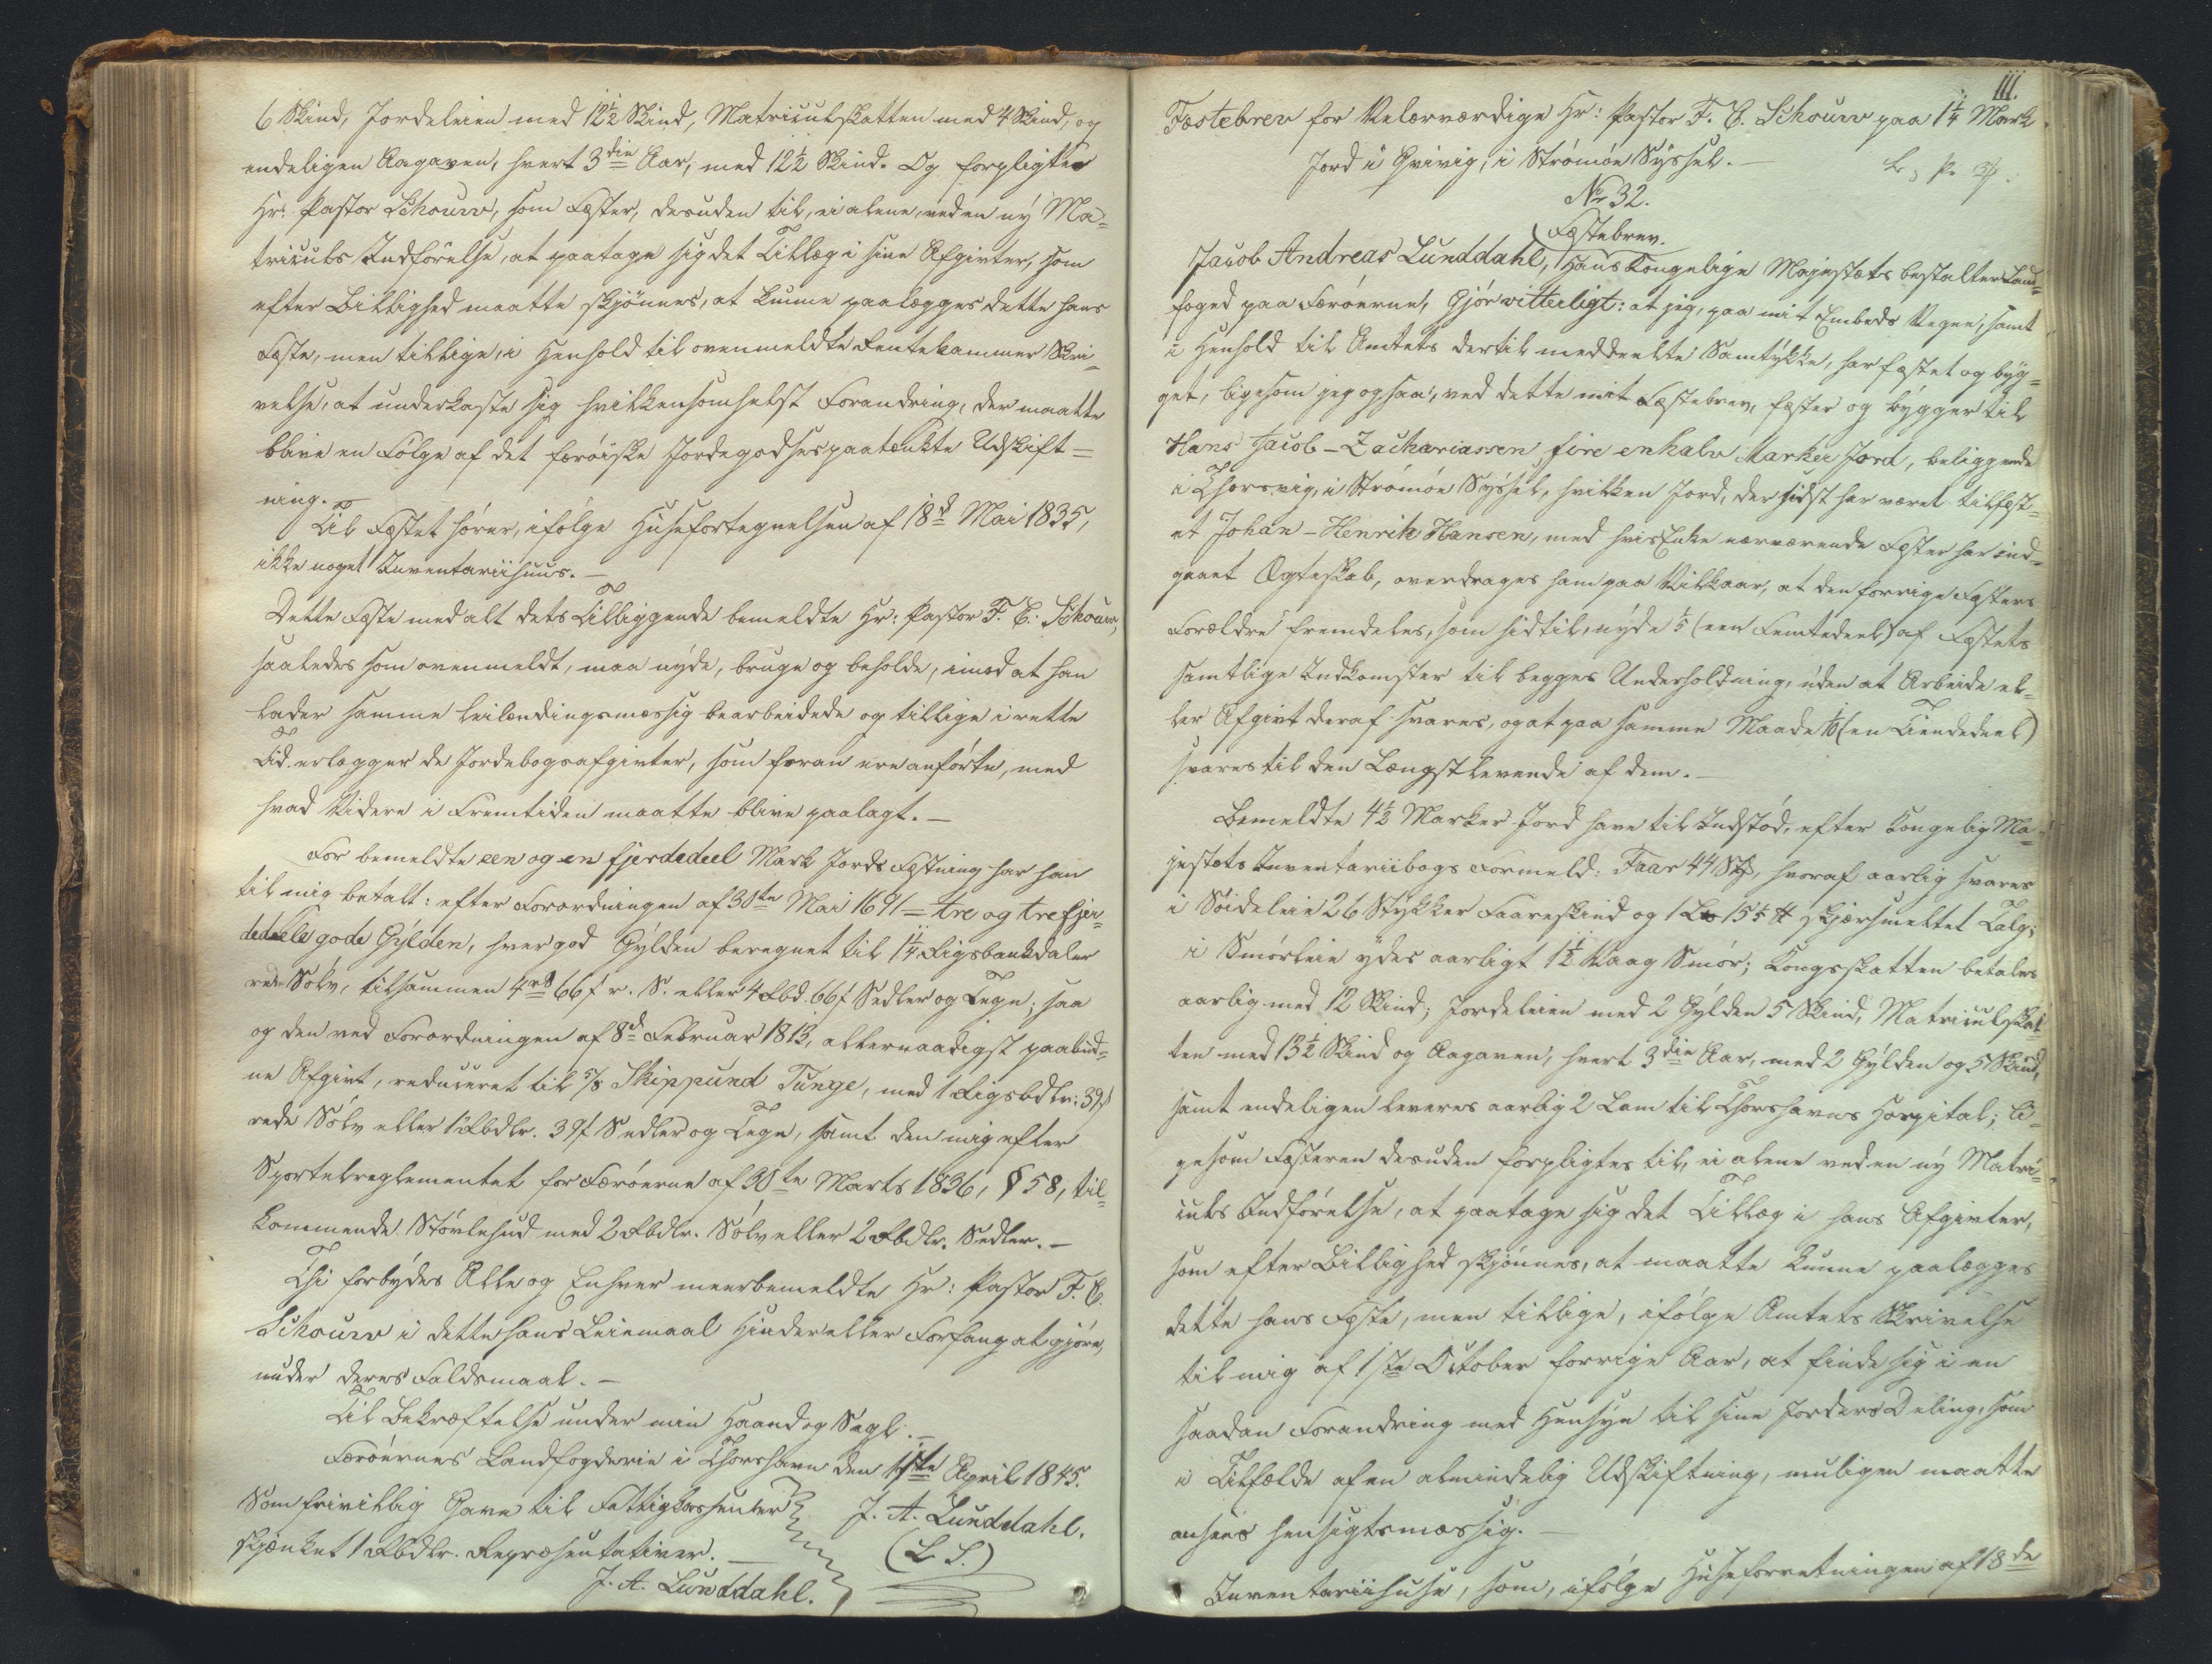 6 Skind, Jordeleien med 12½ Skind, Matriculskatten med 4 Skind, og
endeligen Aagaven, hvert 3die Aar, med 12½ Skind. Og forpligtes
Hr: Pastor Schouw, som Fæster, desuden til, ei alene, ved en ny Ma-
triculs Indførelse, at paatage sig det Tillæg i sine Afgivter, som
efter Billighed maatte skjønnes, at kunne paalægges dette hans
Fæste, men tillige, i Henhold til ovenmeldte Rentekammer Skri-
velse, at underkaste sig hvilkensomhelst Forandring, der maatte
blive en Følge af det færøiske Jordegodses paatænkte Udskift=
ning.
Til Fæstet hører, ifølge Husefortegnelsen af 18d Mai 1835,
ikke noget Inventariihuus. —
Dette Fæste med alt dets Tilliggende bemeldte Hr: Pastor F. C. Schouw,
saaledes som ovenmeldt, maa nyde, bruge og beholde, imod at han
lader samme leilændingsmæssig bearbeidede og tillige i rette
Tid erlægger de Jordebogsafgivter, som foran ere anførte, med
hvad Videre i Fremtiden maatte blive paalagt. —
For bemeldte een og en fjerdedeel Mark Jords Fæstning har han
til mig betalt: efter Forordningen af 30te Mai 1691 = tre og tre fjer-
dedeele gode Gylden, hver god Gylden beregnet til 1¼ Rigsbankdaler
rede Sølv, tilsammen 4rd 66 f r. S. eller 4 Rbd. 66 f Sedler og Tegn; saa
og den ved Forordningen af 8d Februar 1813, allernaadigst paabud-
ne Afgivt, reduceret til 5/8 Skippund Tunge, med 1 Rigsbdlr: 39 f
rede Sølv eller 1 Rbdlr. 39 f Sedler og Tegn, samt den mig efter
Sportelreglementet for Færøerne af 30te Marts 1836, § 58, til-
kommende Støvlehud med 2 Rbdlr. Sølv eller 2 Rbdlr. Sedler. —
Thi forbydes Alle og Enhver meerbemeldte Hr: Pastor F. C.
Schouw i dette hans Leiemaal Hinder eller Forfang at gjøre,
under deres Faldsmaal. —
Til Bekræftelse under min Haand og Segl. —
Færøernes Landfogderie i Thorshavn den 1ste April 1845.
Som frivillig Gave til Fattigvæsenet
J. A. Lunddahl.
skjænket 1 Rbdlr. Repræsentativer. —
(L. S.)
J. A. Lunddahl.
111.
Fæstebrev for Velærværdige Hr: Pastor F. C. Schouw paa 1¼ Mark
Jord i Qvivig, i Strømøe Syssel. —
No 32.
Fæstebrev.
Jacob Andreas Lunddahl, Hans Kongelige Majestæts bestalter Land-
foged paa Færøerne, Gjør vitterligt: at jeg, paa mit Embeds Vegne, samt
i Henhold til Amtets dertil meddeelte Samtykke, har fæstet og byg-
get, ligesom jeg ogsaa, ved dette mit Fæstebrev, fæster og bygger til
Hans Jacob - Zachariassen fire en halv Marker Jord, beliggende
i Thorsvig, i Strømøe Syssel, hvilken Jord, der sidst har været tilfæst-
et Johan - Henrik Hansen, med hvis Enke nærværende Fæster har ind-
gaaet Ægteskab, overdrages ham paa Vilkaar, at den forrige Fæsters
Forældre fremdeles, som hidtil, nyde 1/5 (een Femtedeel) af Fæstets
samtlige Indkomster til begges Underholdning, uden at Arbeide el-
ler Afgivt deraf svares, og at paa samme Maade 1/10 (en Tiendedeel)
svares til den Længstlevende af dem. —
Bemeldte 4½ Marker Jord have til Indstød, efter Kongelig Ma-
jestæts Inventariibogs Formeld: Faar 44 Stk, hvoraf aarlig svares
i Søideleie 26 Stykker Faareskind og 1 Lb 15 1/5 ℔ skjærsmeltet Talg;
i Smørleie ydes aarligt 1½ Vaag Smør; Kongsskatten betales
aarlig med 12 Skind; Jordeleien med 2 Gylden 5 Skind, Matriculskat
ten med 13½ Skind og Aagaven, hvert 3die Aar, med 2 Gylden og 5 Skind,
samt endeligen leveres aarlig 2 Lam til Thorshavns Hospital; li-
gesom Fæsteren desuden forpligtes til, ei alene ved en ny Matri-
culs Indførelse, at paatage sig det Tillæg i hans Afgivter,
som efter Billighed skjønnes, at maatte kunne paalægges
dette hans Fæste, men tillige, ifølge Amtets Skrivelse
til mig af 1ste October forrige Aar, at finde sig i en
saadan Forandring med Hensyn til sine Jorders Deling, som
i Tilfælde af en almindelig Udskiftning, muligen maatte
ansees hensigtsmæssig. —
Inventariihuse, som, ifølge Huseforretningen af 18de